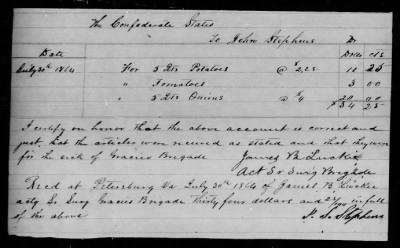 The Confederate States
To John Stephens Dr
Date Dolls cts
July 30th 1864 For 5 Qts Potatoes @ $2.25 11 25
" Tomatoes 3 00
" 5 Qts Onions @ $4 20 00
$34 25
I certify on honor that the above account is correct and
just, that the articles were received as stated and that they were
for the sick of Gracies Brigade
James B Luckie
Act Sr Surg Brigade
Recd at Petersburg Va July 30th 1864 of James B Luckie
actg Sr Surg Gracies Brigade Thirty four dollars and 25/100 in full
of the above
Stephens